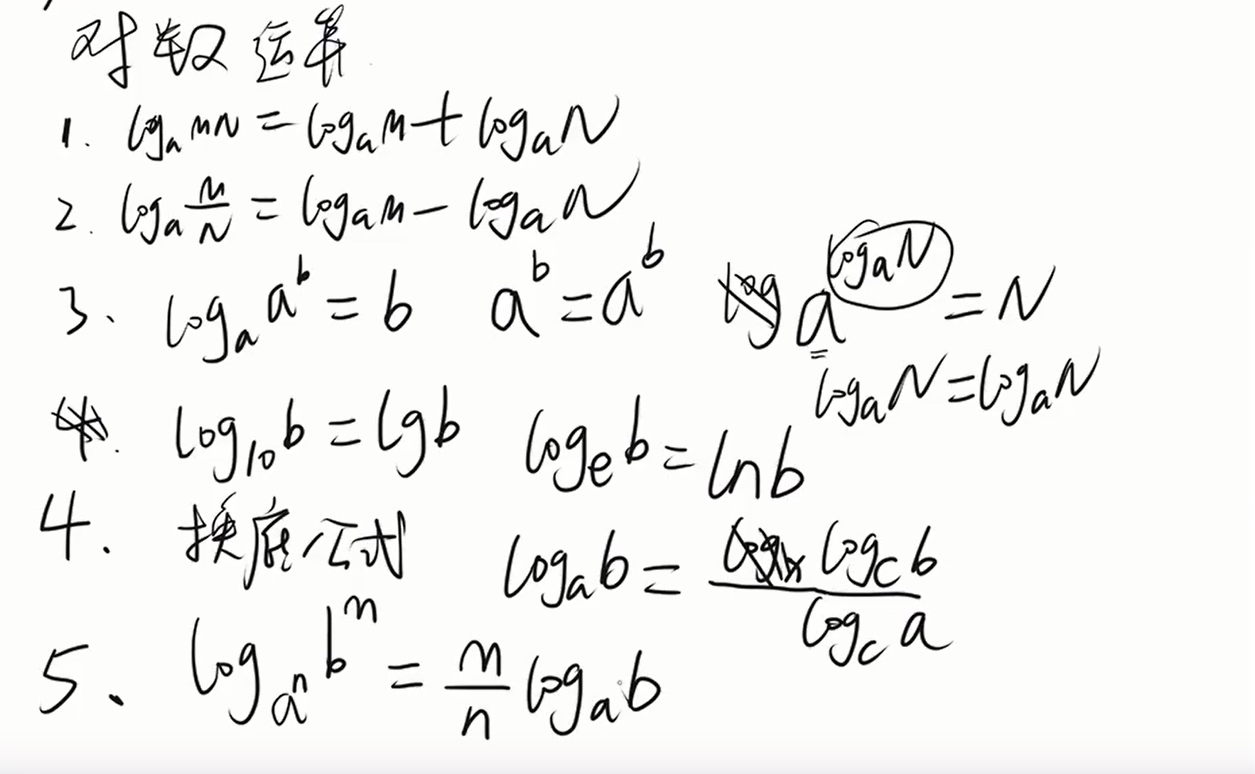 对数运算
1. logₐMN = logₐM + logₐN
2. logₐ M/N = logₐM − logₐN
3. logₐ aᵇ = b aᵇ = aᵇ a^(logₐN) = N
logₐN = logₐN
log₁₀b = lgb logₑb = lnb
4. 换底公式 logₐb = log_c b / log_c a
5. log_(aⁿ) bᵐ = m/n logₐb